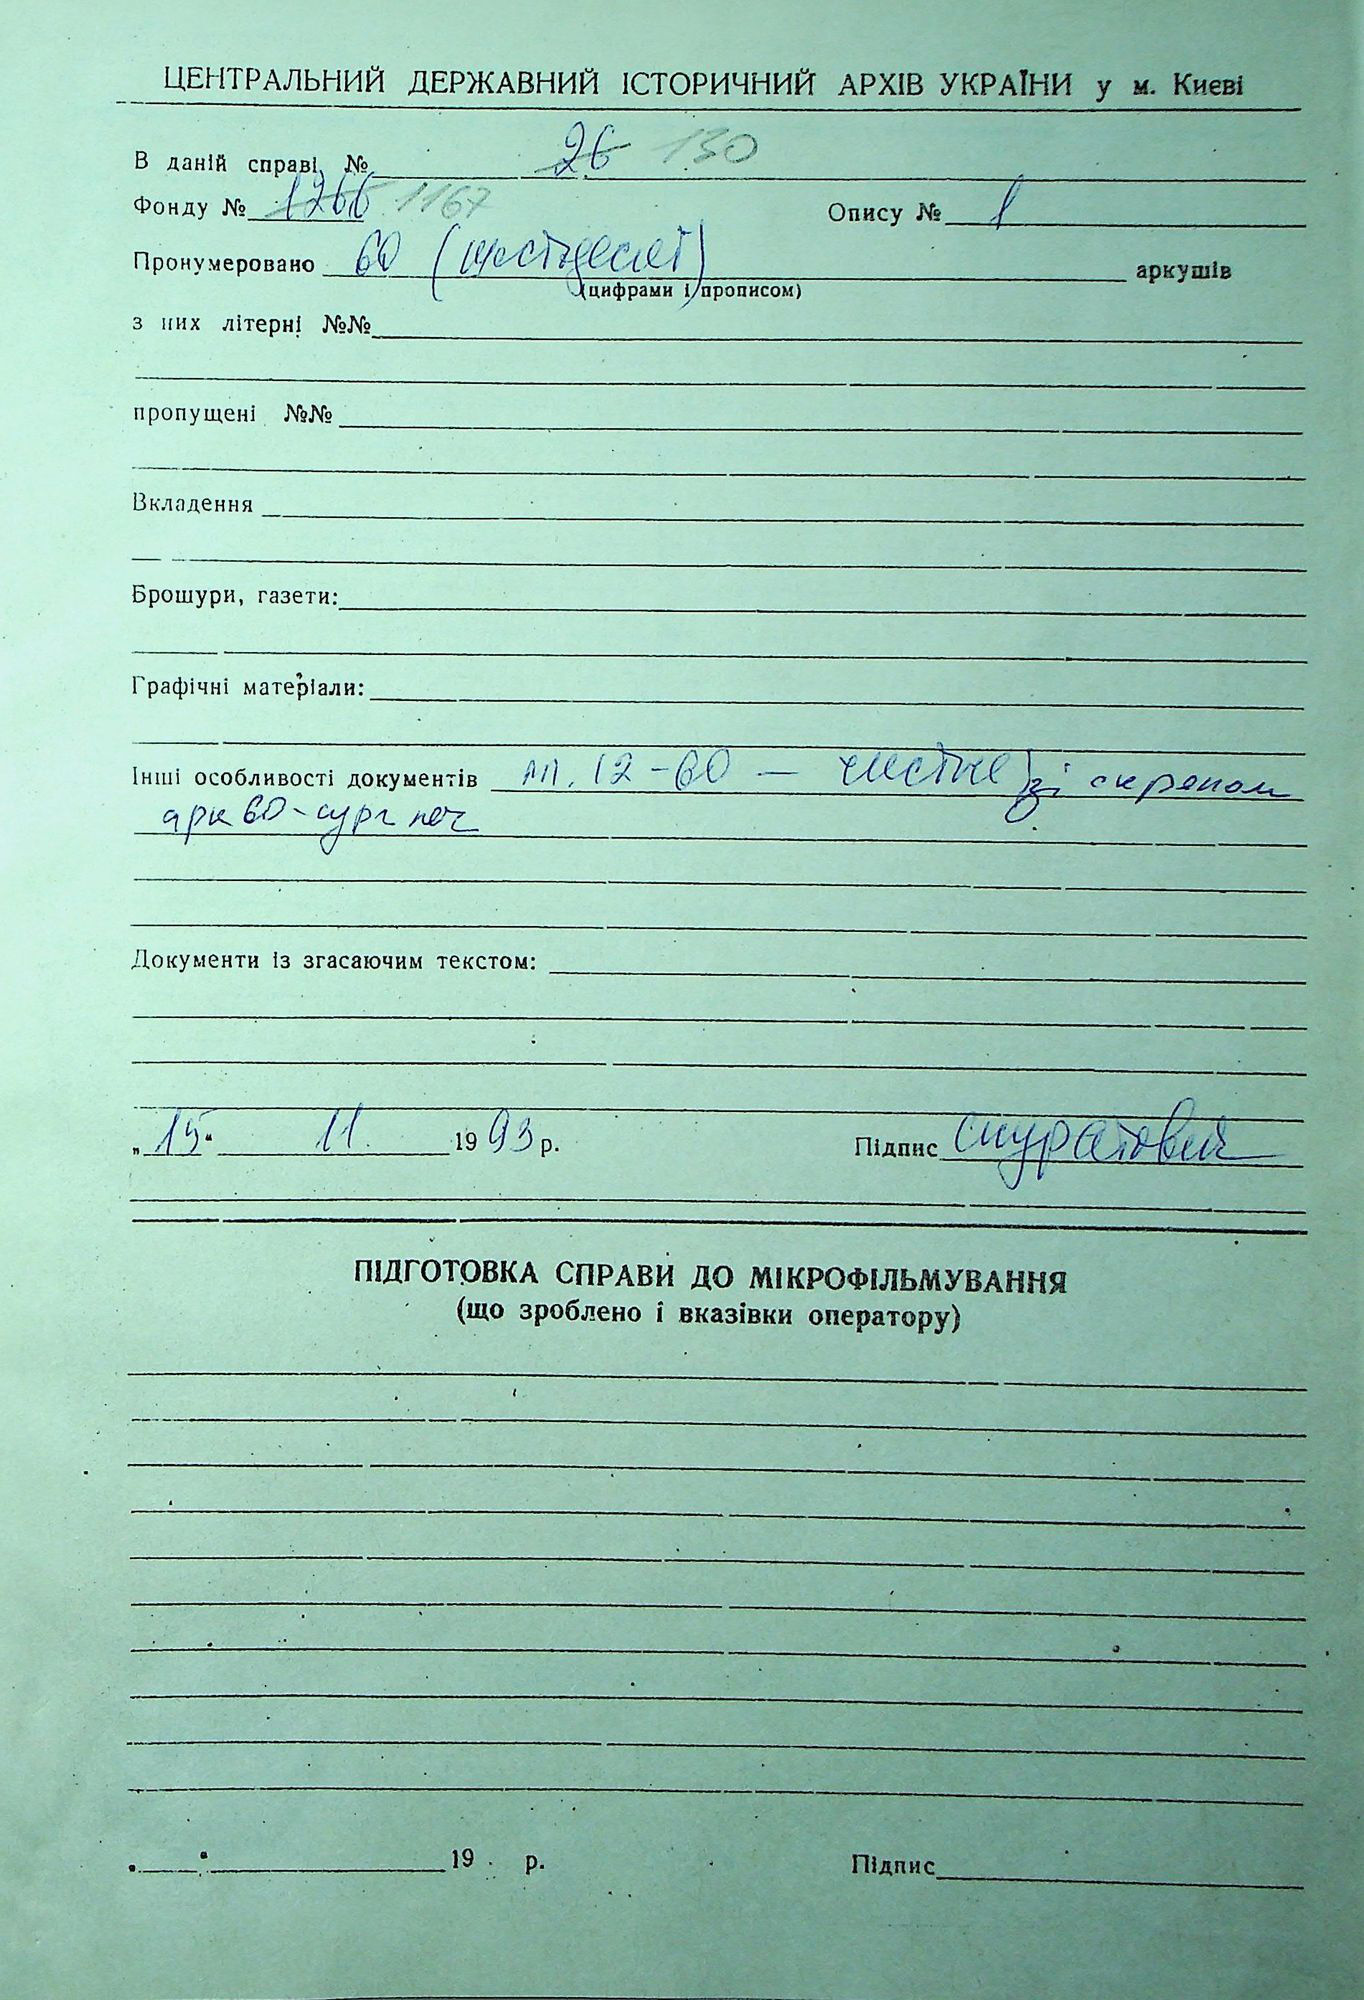 ЦЕНТРАЛЬНИЙ ДЕРЖАВНИЙ ІСТОРИЧНИЙ АРХІВ УКРАЇНИ у м. Києві
В даній справі № 26 130
Фонду № 1266 1167 Опису № 1
Пронумеровано 60 (шістдесят) аркушів
(цифрами і прописом)
з них літерні №№
пропущені №№
Вкладення
Брошури, газети:
Графічні матеріали:
Інші особливості документів 12-60 — чистые зі скрепом
арк 60 - сург печ
Документи із згасаючим текстом:
„15“ 11. 1993 р. Підпис
ПІДГОТОВКА СПРАВИ ДО МІКРОФІЛЬМУВАННЯ
(що зроблено і вказівки оператору)
19 р. Підпис